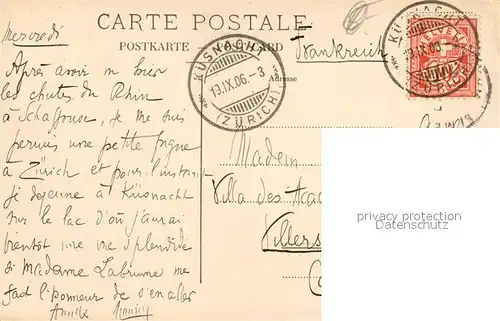 CARTE POSTALE
POSTKARTE POSTCARD
Mercredi
Frankreich
Adresse
KÜSNACHT
19.IX.06.-3
(ZÜRICH)
KÜSNACHT
19.IX.06.-3
(ZÜRICH)
HELVETIA
Après avoir vu
les chutes du Rhin
à Schaffouse, je me suis
permis une petite fugue
à Zürich et pour l'instant
je déjeune à Küsnacht
sur le lac d'où j'aurai
bientôt une vue splendide
si Madame Labrunne me
fait l'honneur de s'en aller
Madem
Villa des Acac
Villers
privacy protection
Datenschutz